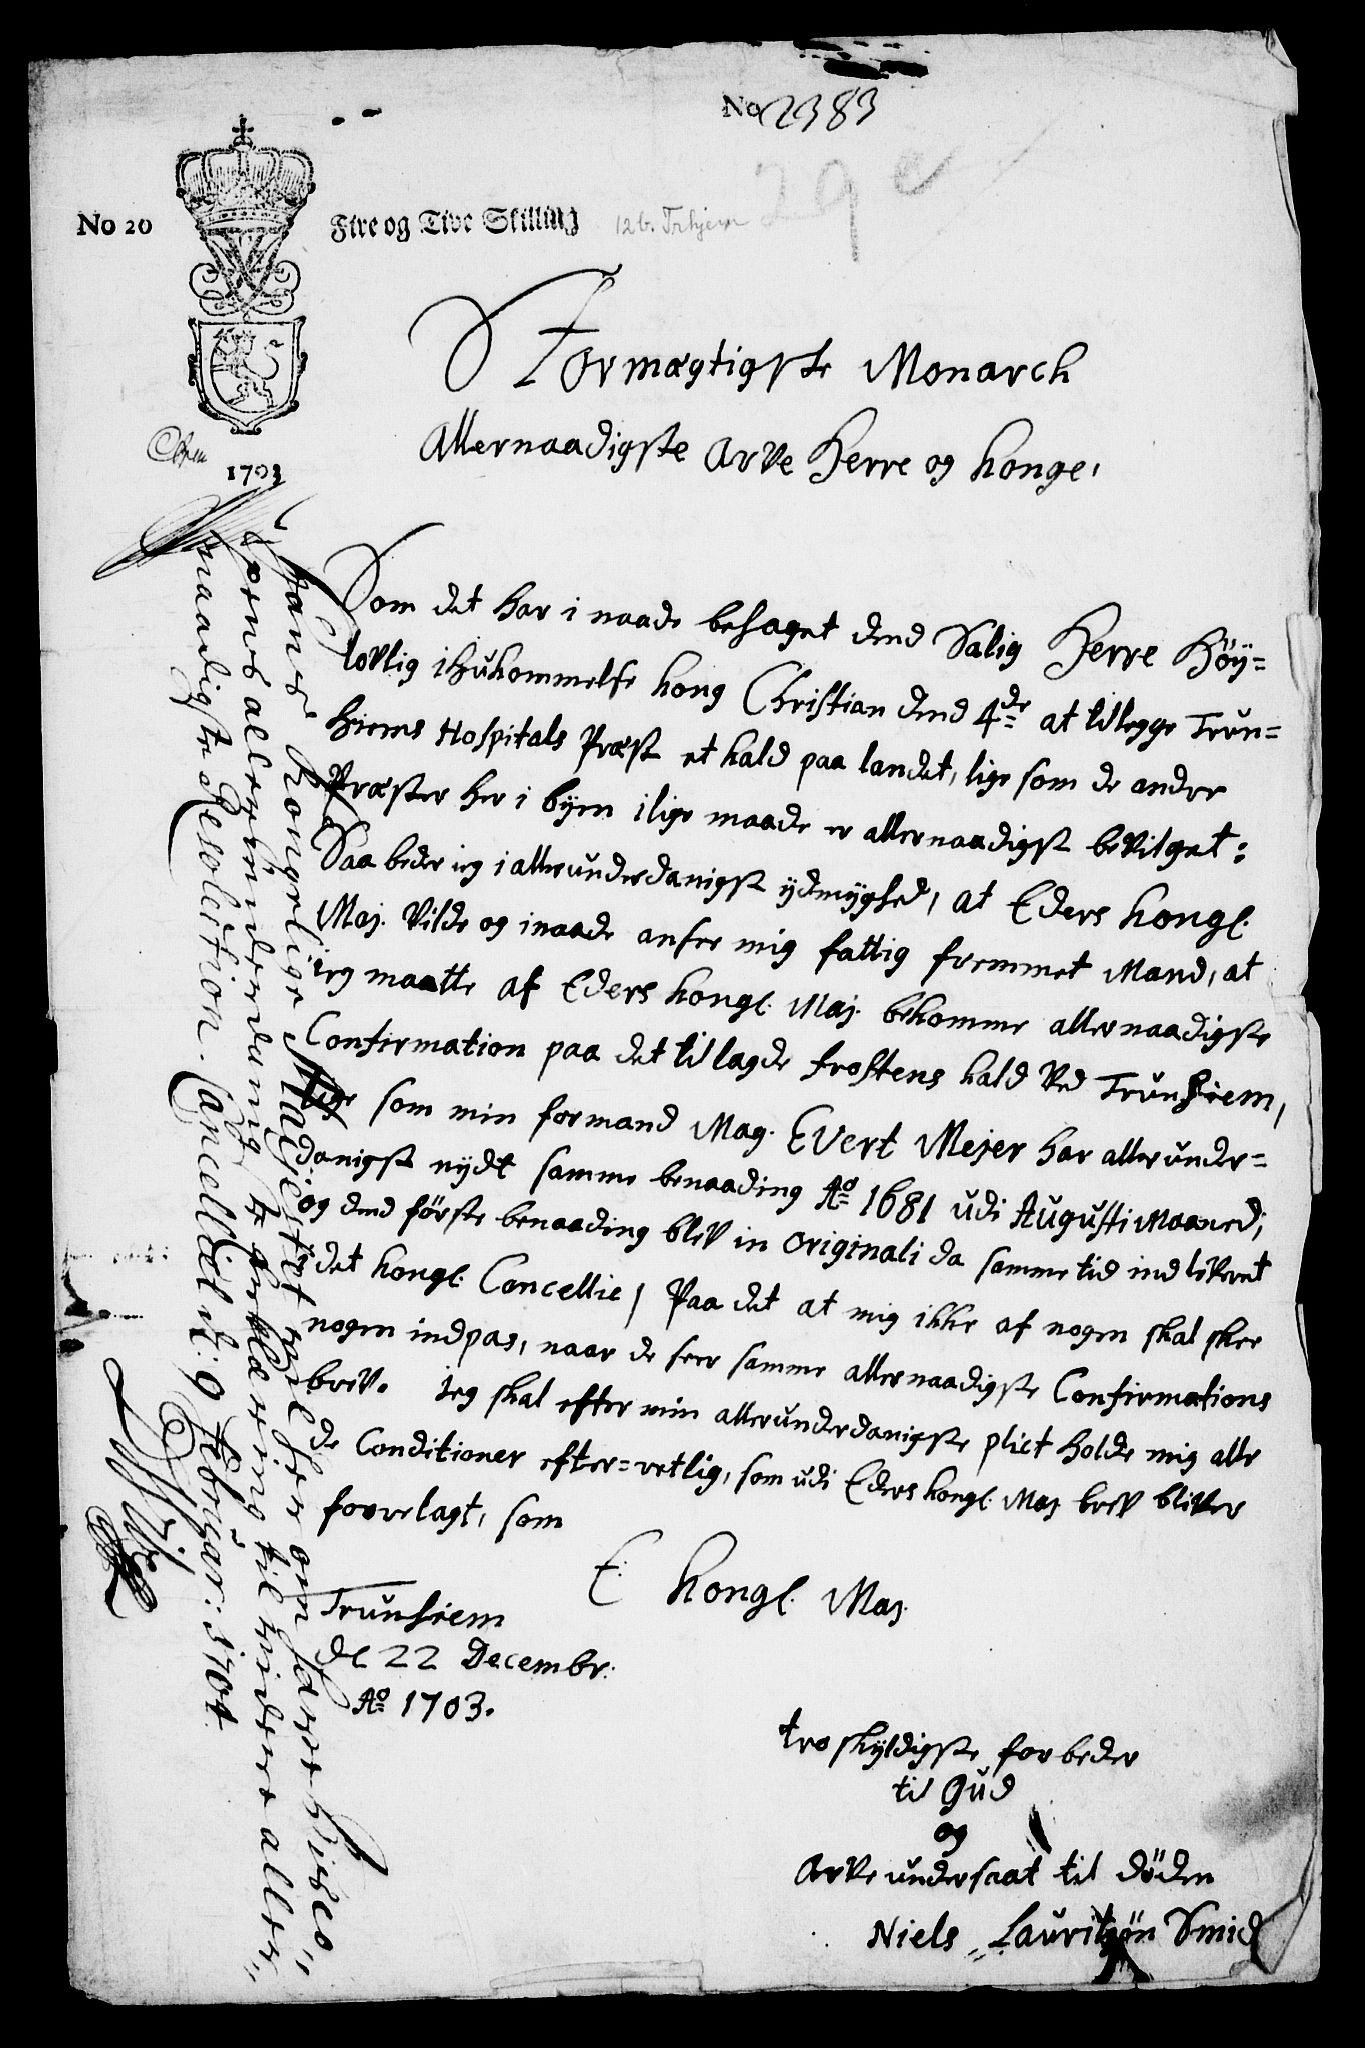 No 2383
29 e
No 20
Fire og Tive Skilling
12 b. Trhjem
1703
Stormægtigste Monarch
Allernaadigste Arve Herre og Konge,
Som det har i naade behaget dend Salig Herre Höy=
lovlig ihukommelse kong Christian dend 4de at tillegge Trun=
hiems Hospitals Præst et kald paa landet, lige som de andre
Præster her i byen i lige maade er allernaadigst bevilget:
Saa beder ieg i allerunderdanigst ydmyghed, at Eders kongl.
Maj. vilde og i naade ansee mig fattig fremmet Mand, at
ieg maatte af Eders kongl. Maj. bekomme allernaadigste
Confirmation paa det tillagde frostens kald ved Trunhiem,
lige som min formand Mag. Evert Mejer har allerunder=
danigst nydt samme benaading Ao 1681 udi Augusti Maaned;
og dend förste benaading blev in originali da samme tid ind liveret
i det kongl. Cancellie, Paa det at mig ikke af nogen skal skee
nogen indpas, naar de seer samme allernaadigste Confirmations
brev. Jeg skal efter min allerunderdanigste plict holde mig alle
de Conditioner efter=retlig, som udi Eders kongl. Maj brev bliver
forelagt, som
E. kongl. Maj.
Trunhiem
dl 22 Decembr.
Ao 1703.
tro skyldigste forbeder
til Gud
og
Arve undersaat til döden
Niels Lauritzön Smid
Hans Kongelige Mayestet vilde her om fordre Biscop=
pens allerunderdanigste erklæring til videre aller=
naadigste Resolution. Cancelliet d: 9 Februar: 1704.